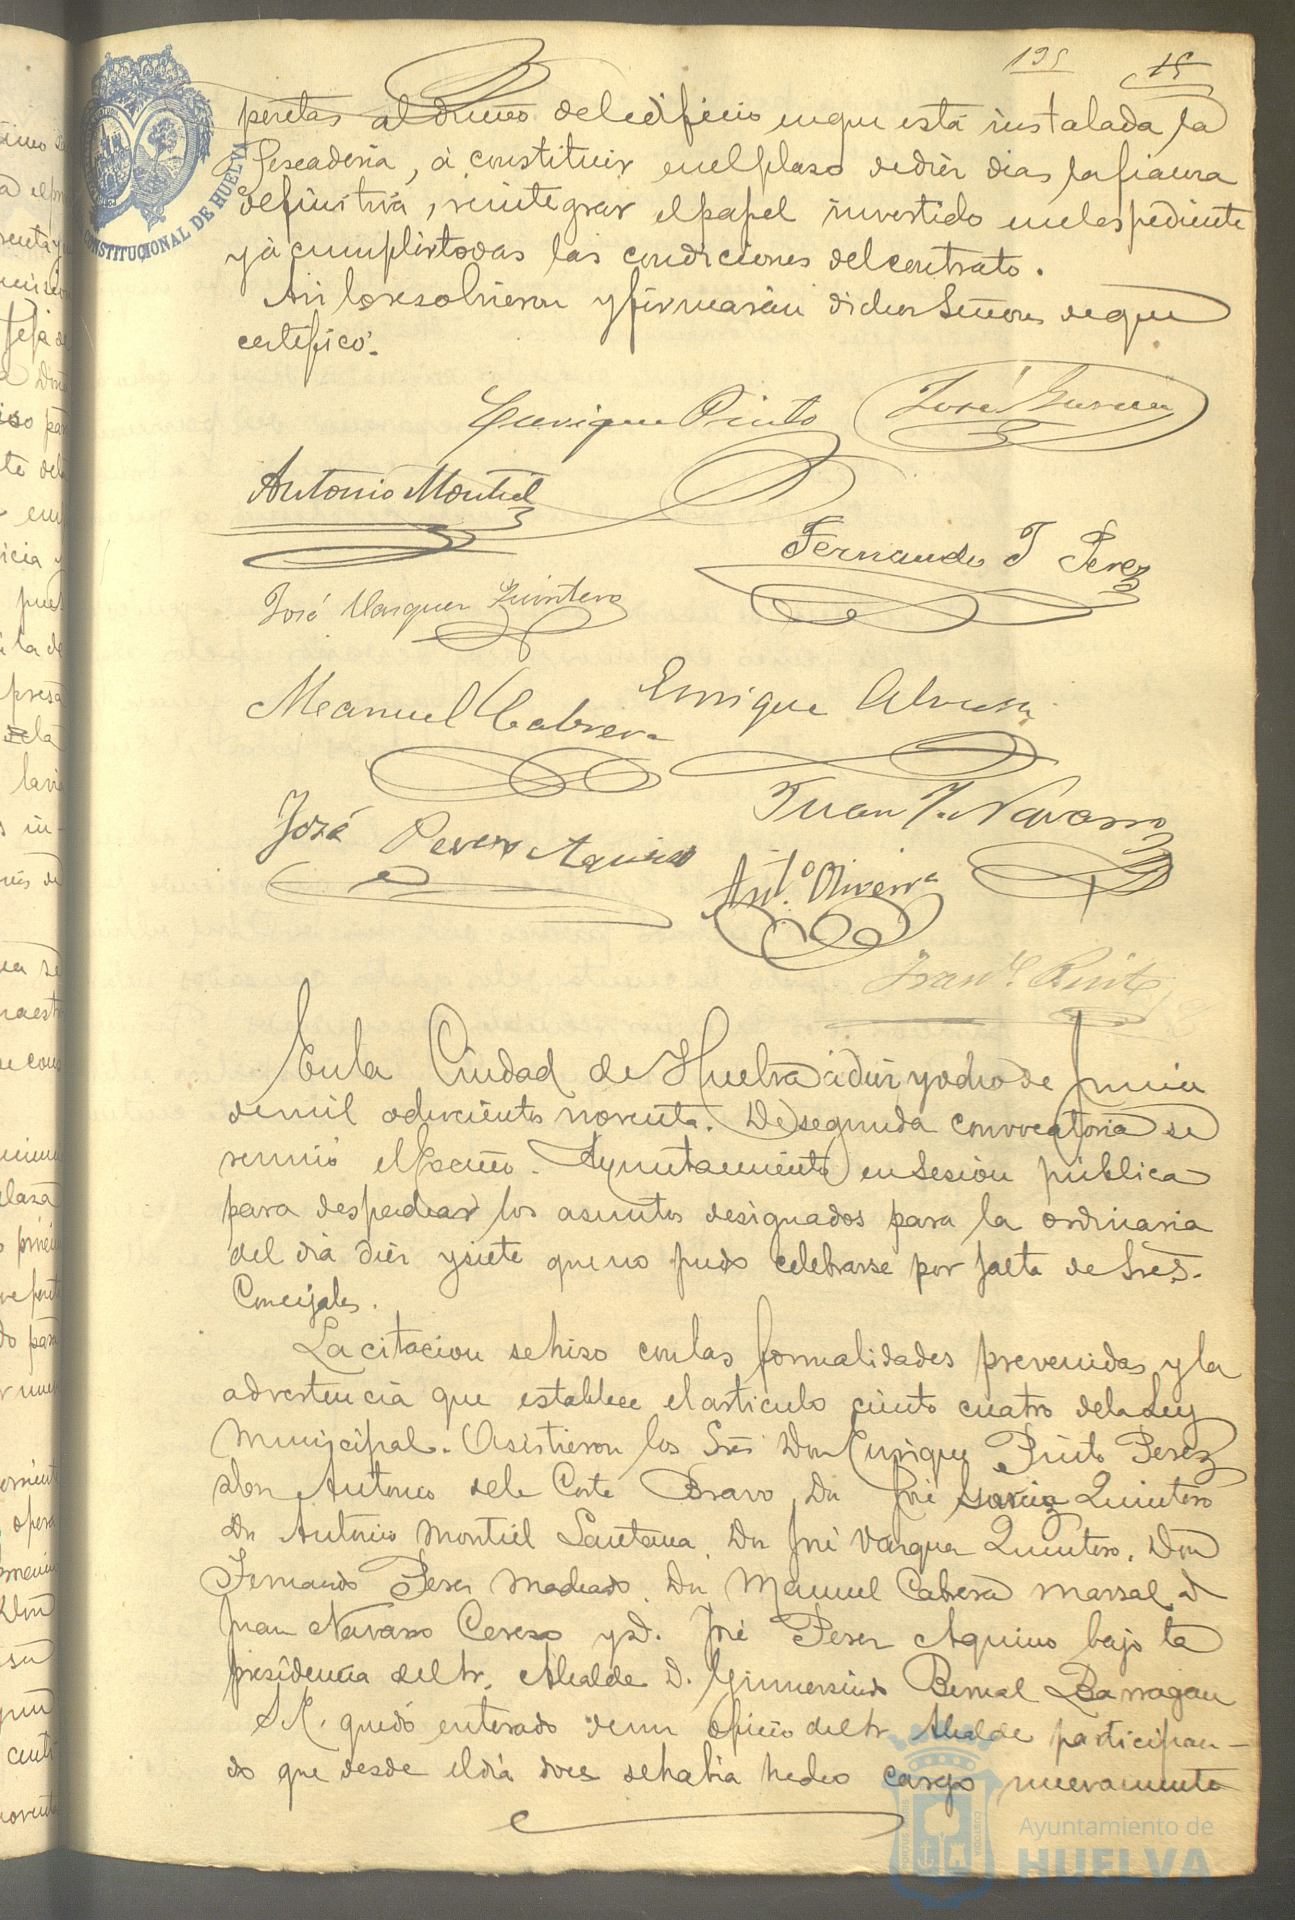 195 15
pesetas al dueño del edificio enque está instalada la
Pescaderia, á constituir enel plaso dedier dias la fianza
definitiva, reintegrar el papel invertido enel espediente
y á cumplir todas las condiciones del contrato.
Asi lo resolvieron y firmarán dichos Señores deque
certifico.
Enrique Pinto José Garcia
Antonio Montiel
Fernando T Perez
José Vasquez Quintero
Manuel Cabrera Enrique
José Perez Aquino Juan J. Navarro
Ant.º Oliveira
Fran.co Pinto
CONSTITUCIONAL DE HUELVA
Enla Ciudad de Huelva á dier y ocho de Junio
demil ochocientos noventa. De segunda convocatoria se
reunió el Excmo. Ayuntamiento en Sesion pública
para despachar los asuntos designados para la ordinaria
del dia dier y siete que no pudo celebrarse por falta de Sres.
Concejales.
La citacion se hiso con las formalidades prevenidas y la
advertencia que establece el articulo ciento cuatro dela Ley
Municipal. Asistieron los Sres Don Enrique Pinto Perez
don Antonio dela Corte Bravo, Dn José Garcia Quintero
Dn Antonio Montiel Santana, Dn José Vasquez Quintero, Don
Fernando Perez Machado, Dn Manuel Cabrera Marsal, d
Juan Navarro Cereso y D. José Perez Aquino bajo la
presidencia del Sr. Alcalde D. Gumersindo Bernal Barragan
S.E. quedó enterado deun oficio del Sr Alcalde participan-
do que desde el dia doce se habia hecho cargo nuevamente
Ayuntamiento de
HUELVA